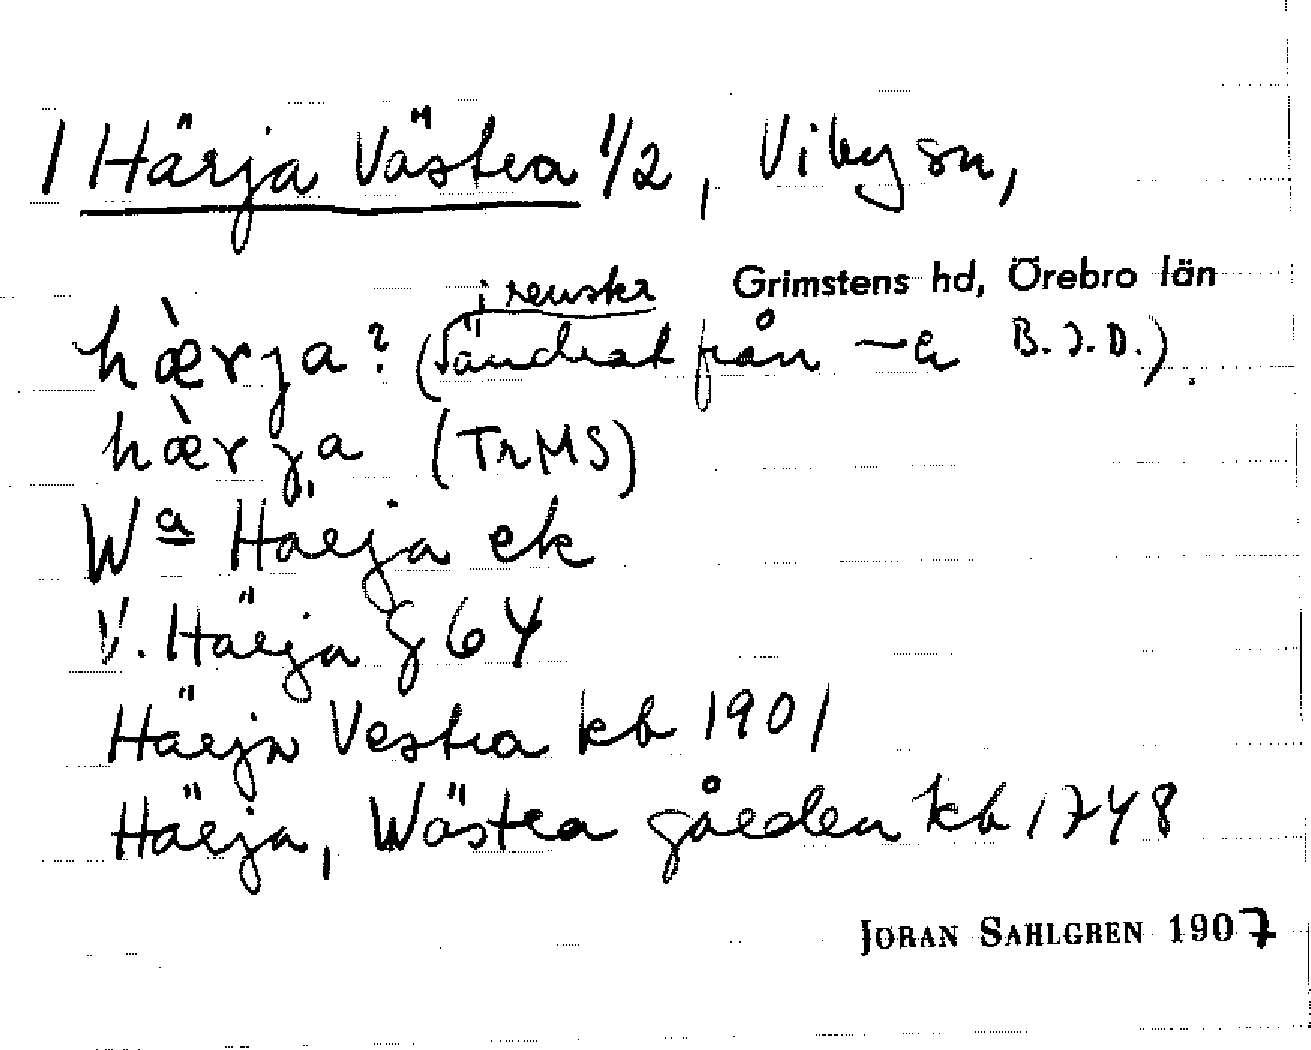 1 Härja Västra 1/2, Viby sn,
Grimstens hd, Örebro län
i renskr
hæ̀rja? (ändrat från -a B.J.D.).
hæ̀rja (TrMS)
Wa Härja ek
V. Härja G 64
Härja Vestra kb 1901
Härja, Wästra gården kb 1748
JÖRAN SAHLGREN 1907